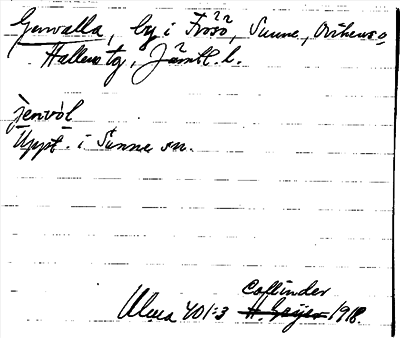 Genvalla, by i Frösö, Sunne, Ovikens o
Hallens tg, Jämtl. l.
jenvòl
Uppt. i Sunne sn.
Collinder
Ulma 401:3 H. Geijer 1918.